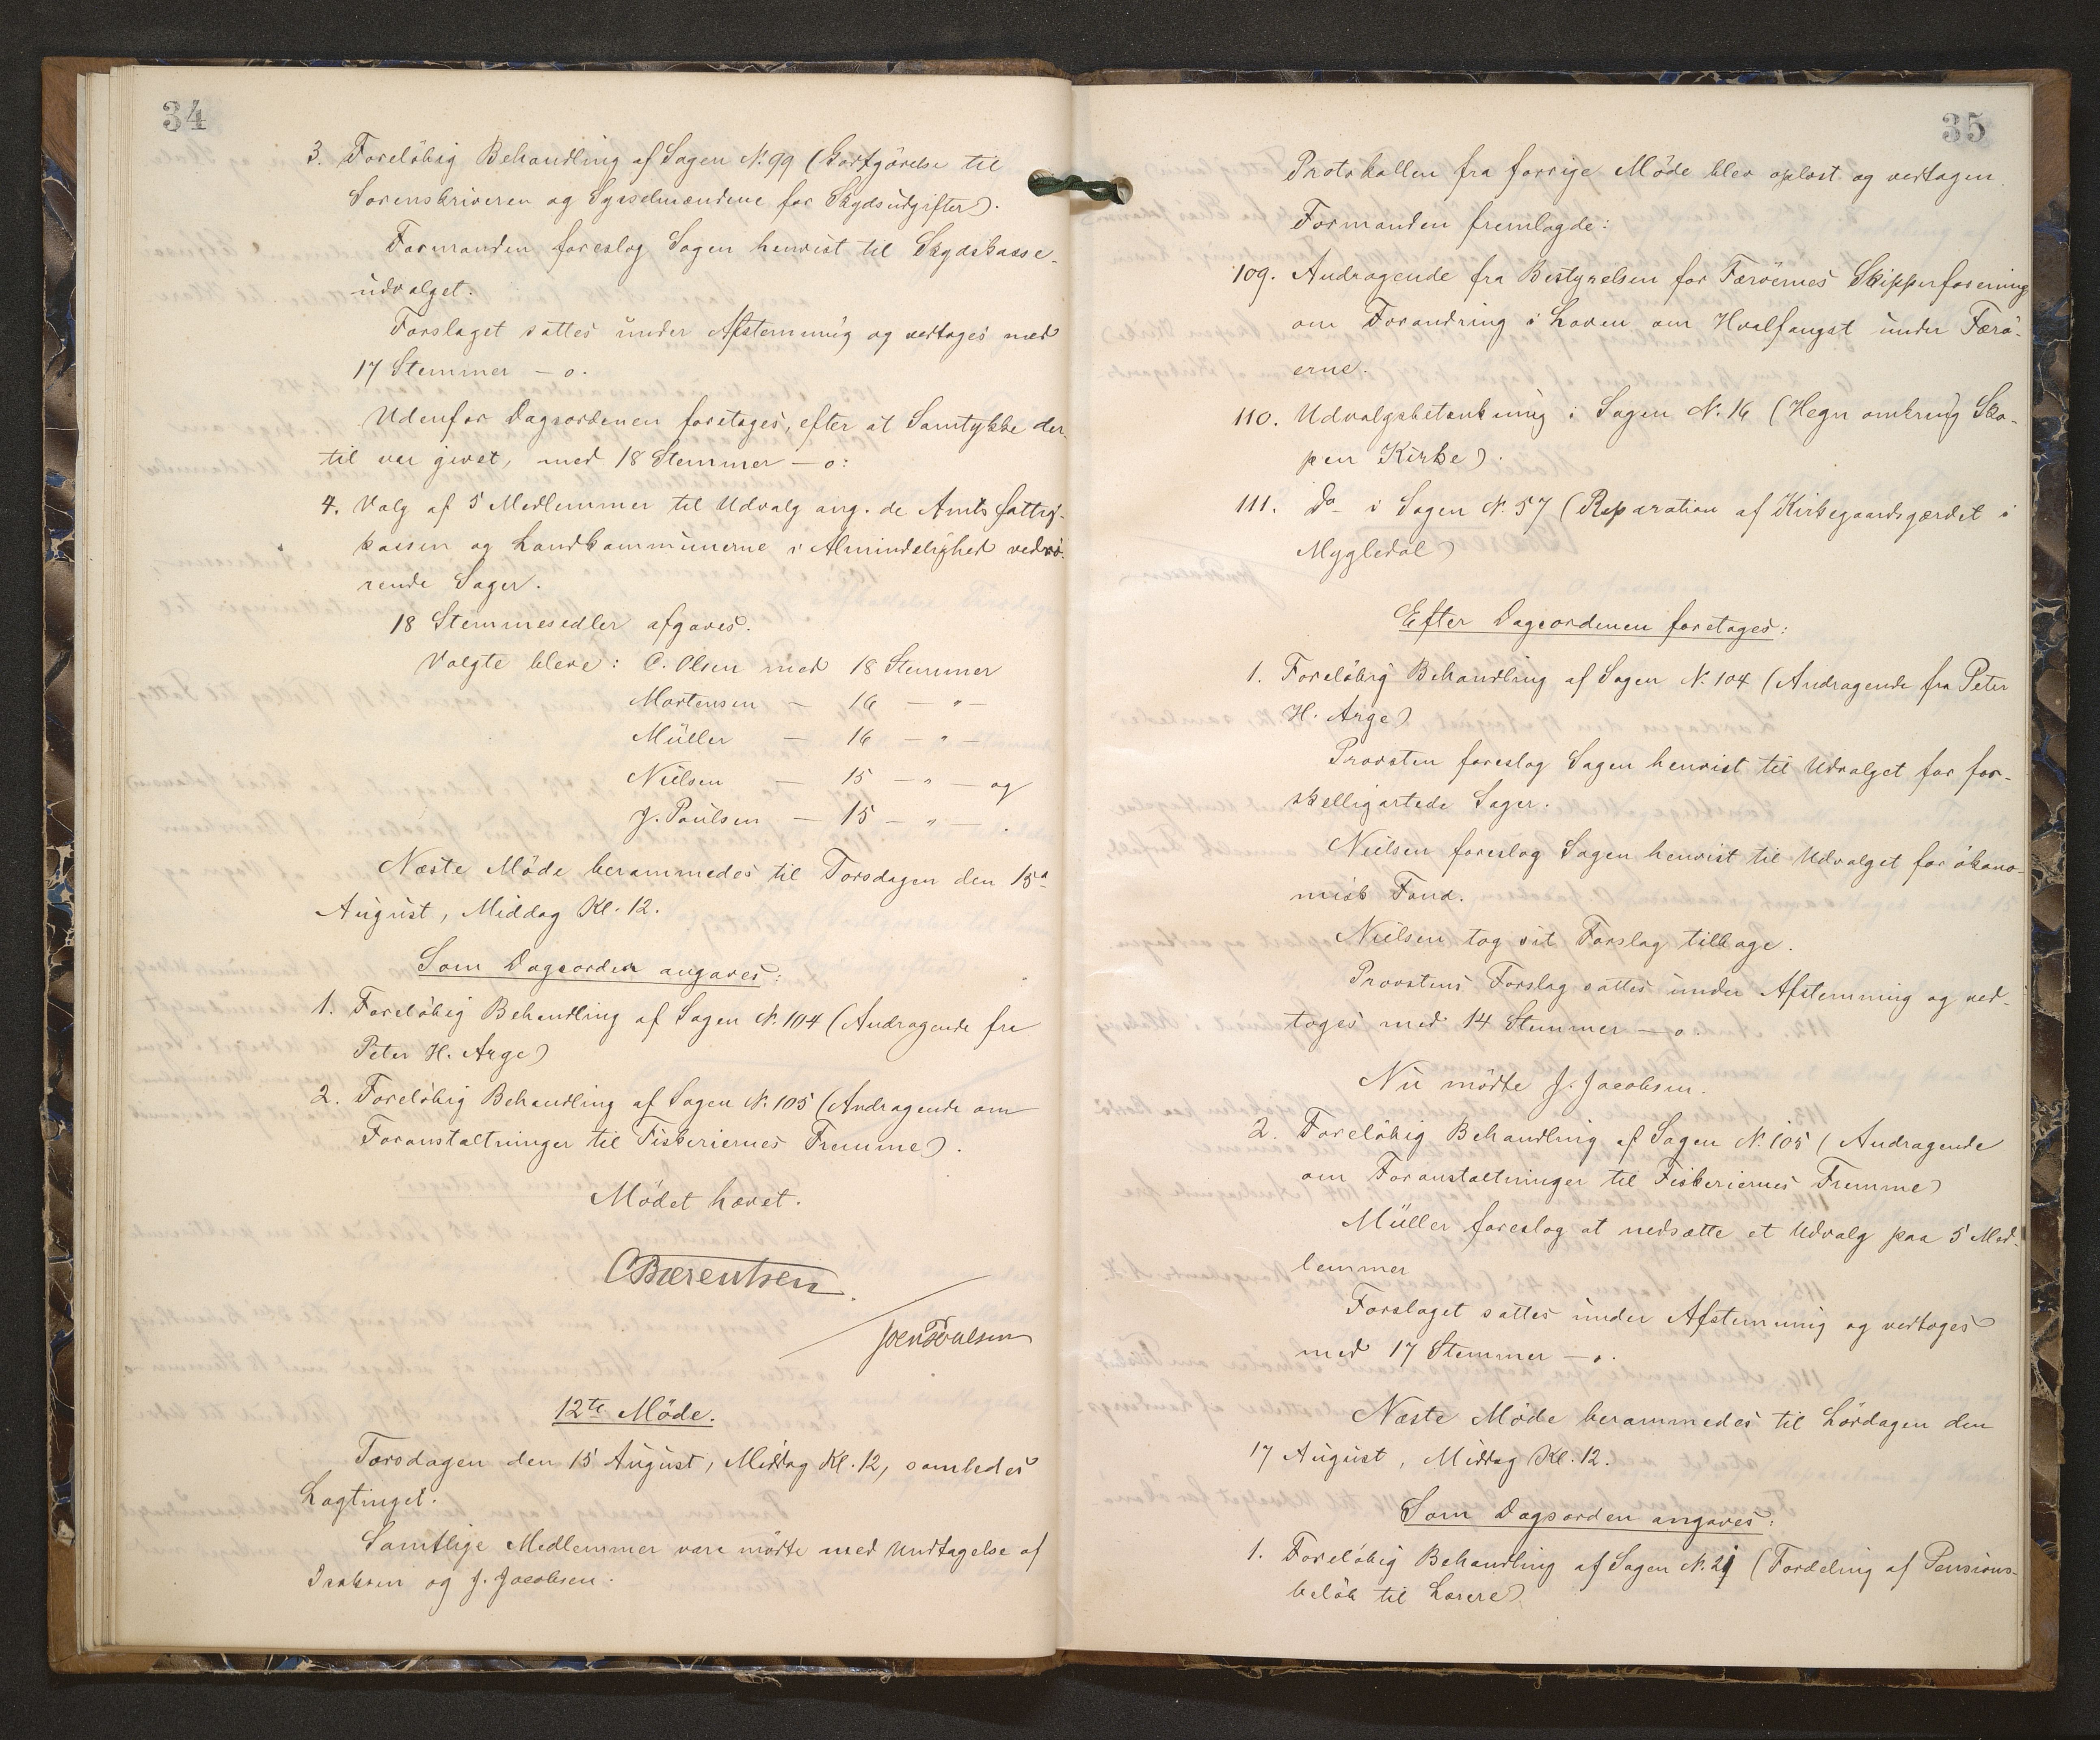 34
3. Foreløbig Behandling af Sagen N. 99 (Godtgørelse til
Sorenskriveren og Sysselmændene for Skydsudgifter).
Formanden foreslog Sagen henvist til Skydskasse-
udvalget.
Forslaget sattes under Afstemning og vedtoges med
17 Stemmer – o.
Udenfor Dagsordenen foretoges, efter at Samtykke der-
til var givet, med 18 Stemmer – o:
4. Valg af 5 Medlemmer til Udvalg ang. de Amtsfattig-
kassen og Landkommunerne i Almindelighed vedrø-
rende Sager.
18 Stemmesedler afgaves.
Valgte bleve: O. Olsen med 18 Stemmer
Mortensen – 16 – " –
Müller – 16 – " –
Nielsen – 15 – " – og
J. Poulsen – 15 – " – .
Næste Møde berammedes til Torsdagen den 15d
August, Middag Kl. 12.
Som Dagsorden angaves:
1. Foreløbig Behandling af Sagen N. 104 (Andragende fra
Peter H. Arge)
2. Foreløbig Behandling af Sagen N. 105 (Andragende om
Foranstaltninger til Fiskeriernes Fremme).
Mødet hævet.
C Bærentsen.
Joen Poulsen
12te Møde.
Torsdagen den 15 August, Middag Kl. 12, samledes
Lagtinget.
Samtlige Medlemmer vare mødte med Undtagelse af
Isaksen og J. Jacobsen.
35
Protokollen fra forrige Møde blev oplæst og vedtagen.
Formanden fremlagde:
109. Andragende fra Bestyrelsen for Færøernes Skipperforening
om Forandring i Loven om Hvalfangst under Færø-
erne.
110. Udvalgsbetænkning i Sagen N. 16 (Hegn omkring Sko-
pen Kirke).
111. Do i Sagen N. 57 (Reparation af Kirkegaardsgærdet i
Mygledal)
Efter Dagsordenen foretoges:
1. Foreløbig Behandling af Sagen N. 104 (Andragende fra Peter
H. Arge)
Provsten foreslog Sagen henvist til Udvalget for for-
skelligartede Sager.
Nielsen foreslog Sagen henvist til Udvalget for økono-
misk Fond.
Nielsen tog sit Forslag tilbage.
Provstens Forslag sattes under Afstemning og ved-
toges med 14 Stemmer – o.
Nu mødte J. Jacobsen.
2. Foreløbig Behandling af Sagen N. 105 (Andragende
om Foranstaltninger til Fiskeriernes Fremme)
Müller foreslog at nedsætte et Udvalg paa 5 Med-
lemmer
Forslaget sattes under Afstemning og vedtoges
med 17 Stemmer – o.
Næste Møde berammedes til Lørdagen den
17 August, Middag Kl. 12.
Som Dagsorden angaves:
1. Foreløbig Behandling af Sagen N. 21 (Fordeling af Pensions-
beløb til Lærere)